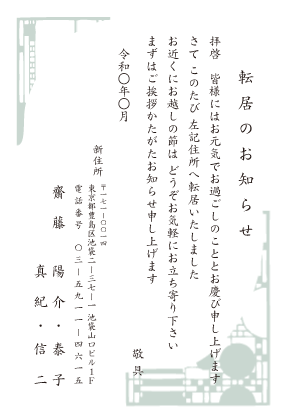 転居のお知らせ
拝啓　皆様にはお元気でお過ごしのこととお慶び申し上げます
さて このたび 左記住所へ転居いたしました
お近くにお越しの節は どうぞお気軽にお立ち寄り下さい
まずはご挨拶かたがたお知らせ申し上げます
敬具
令和〇年〇月
新住所
〒一七一ー〇〇一四
東京都豊島区池袋二ー三七ー一 池袋山口ビル１Ｆ
電話番号　〇三ー五九一一ー四六一五
齋藤　陽介・泰子
真紀・信二